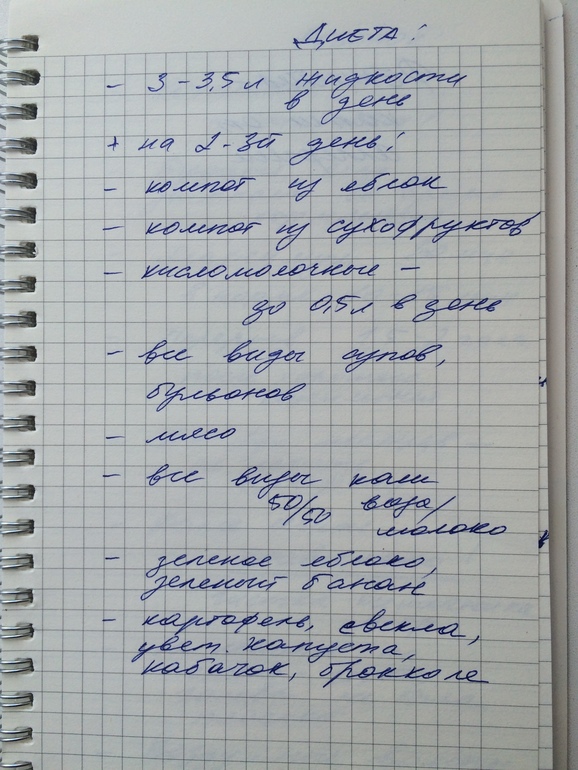 ДИЕТА!
- 3-3,5 л жидкости
в день
+ на 2-3й день!
- компот из яблок
- компот из сухофруктов
- кисломолочные -
до 0,5 л в день
- все виды супов,
бульонов
- мясо
- все виды каш
50/50 вода/
молоко
- зеленое яблоко,
зеленый банан
- картофель, свекла,
цвет. капуста,
кабачок, брокколе